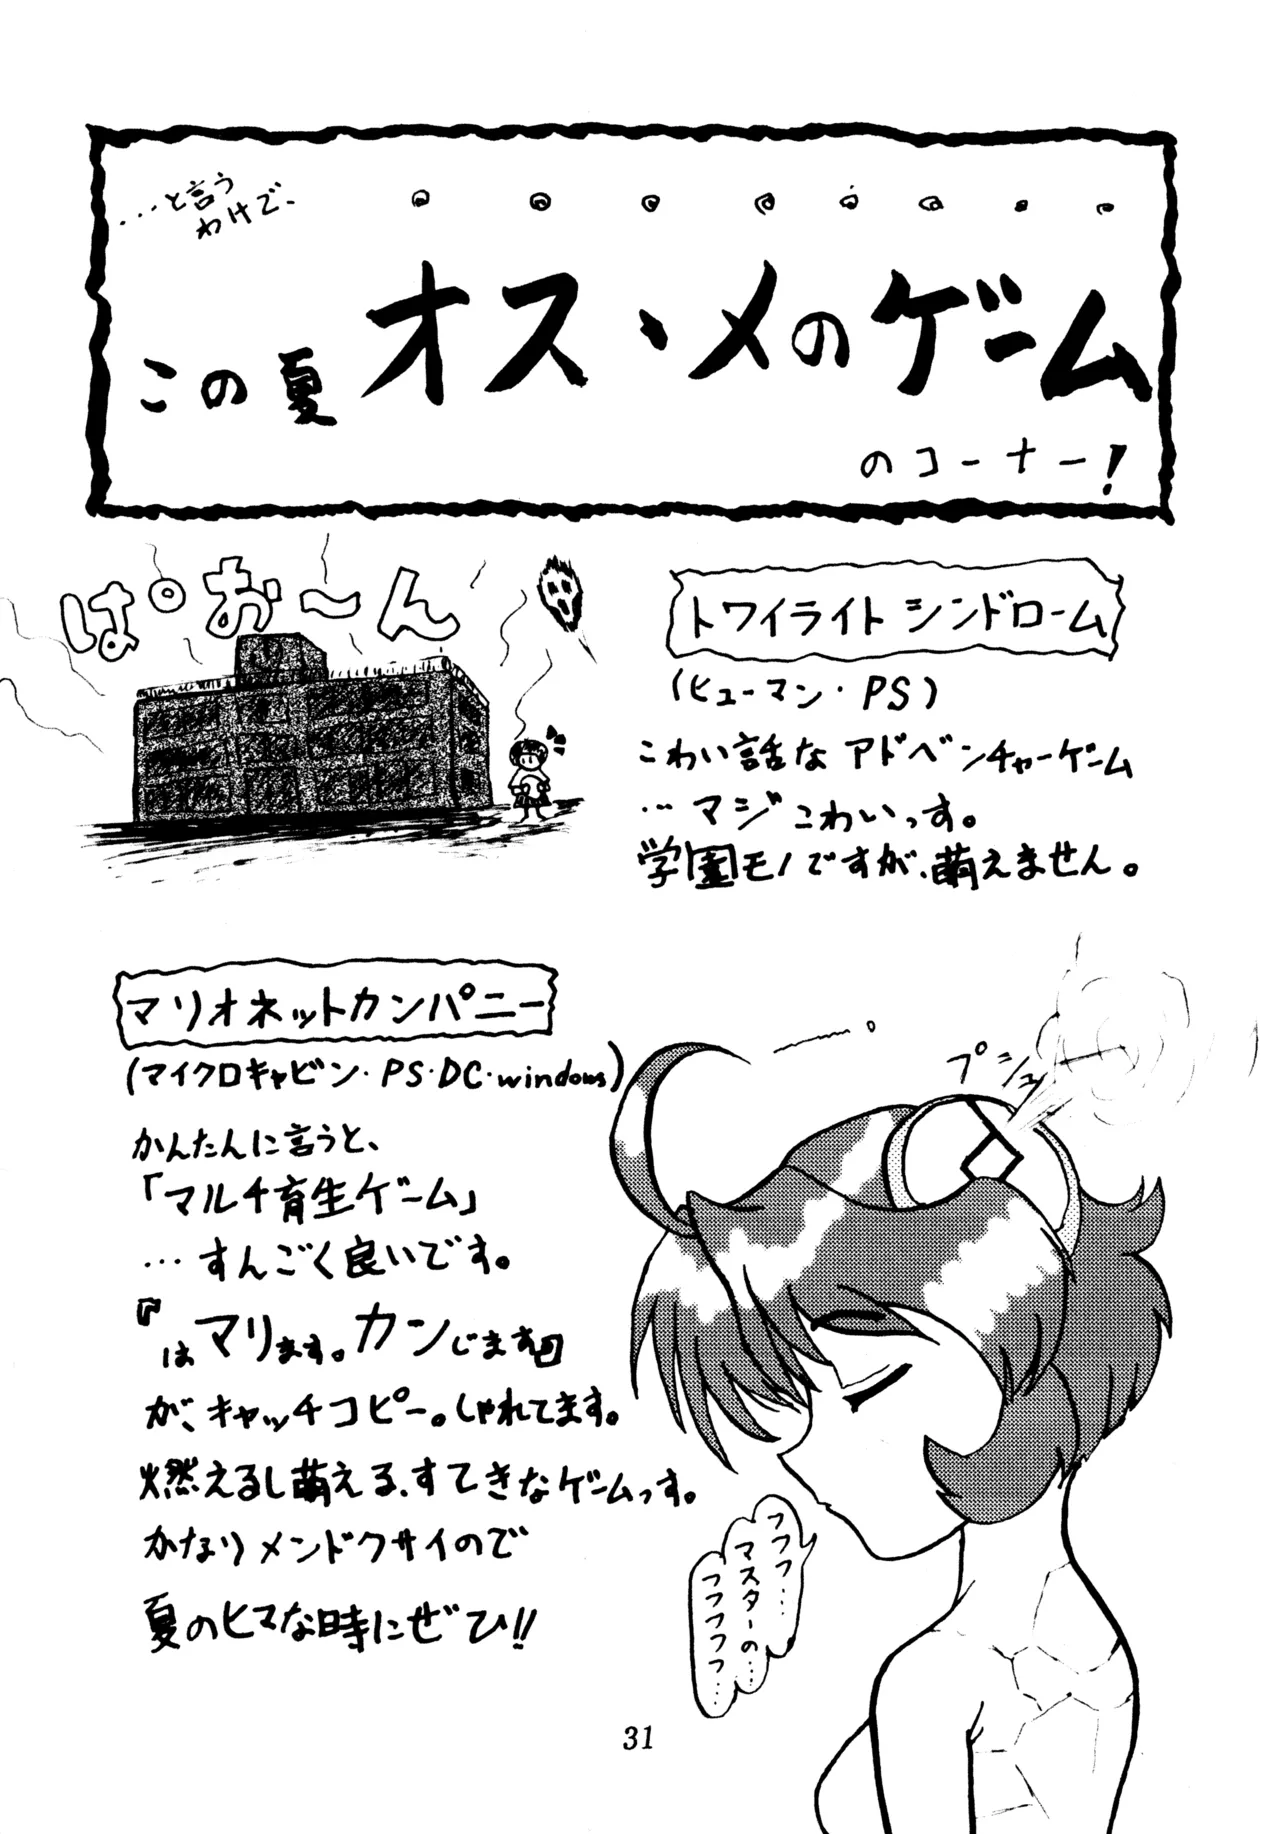 …と言う
わけで、
この夏 オスヽメのゲーム
のコーナー！
ぱお〜ん
トワイライトシンドローム
(ヒューマン・PS)
こわい話な アドベンチャーゲーム
…マジこわいっす。
学園モノですが、萌えません。
マリオネットカンパニー
(マイクロキャビン・PS・DC・windows)
かんたんに言うと、
「マルチ育生ゲーム」
…すんごく良いです。
『はマリます。カンじます』
が、キャッチコピー。しゃれてます。
燃えるし萌える、すてきなゲームっす。
かなりメンドクサイので
夏のヒマな時にぜひ!!
プシュー
フフフ…
マスターの…
フフフフフ…
31